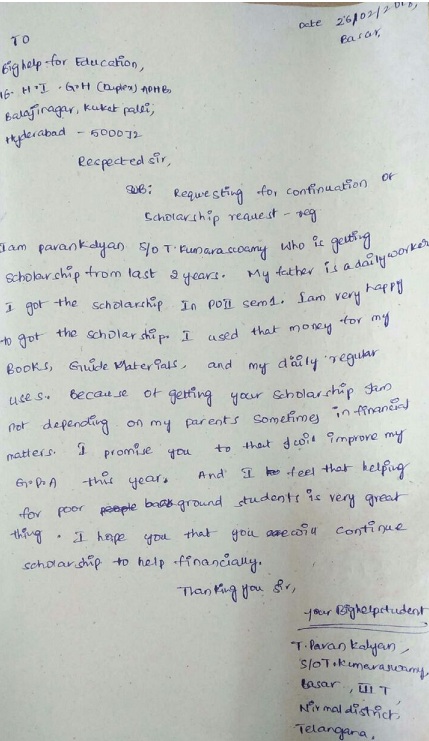 Date 26/02/2018,
Basar,
TO
Bighelp for Education,
16- H.I.G.H (Duplex) APHB,
Balajinagar, Kukat palli,
Hyderabad - 500072
Respected sir,
SUB: Requesting for continuation of
Scholarship request - reg
Iam pavankalyan S/O T.Kumaraswamy who is getting
scholarship from last 2 years. My father is a daily worker
I got the scholarship In PUII sem1. Iam very happy
to got the scholarship. I used that money for my
Books, Guide Materials, and my daily regular
uses. Because of getting your scholarship Iam
not depending on my parents sometimes in financial
matters. I promise you to that I will improve my
G.P.A this year. And I feel that helping
for poor back ground students is very great
thing. I hope you that you will continue
scholarship to help financially.
Thanking you sir,
your Bighelpstudent
T. Pavan Kalyan,
S/O T.Kumaraswamy,
Basar, IIIT,
Nirmal district,
Telangana.